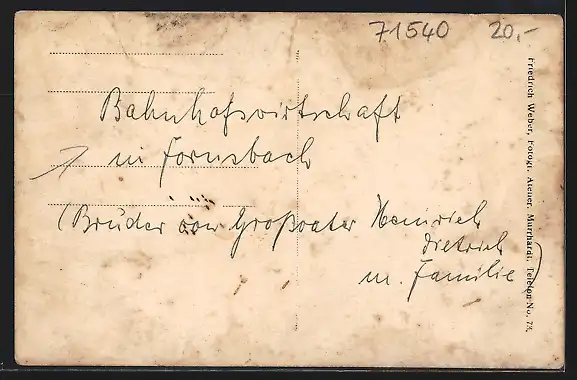 71540 20,-
Bahnhofswirtschaft
in Fornsbach
(Bruder von Großvater Heinrich
Dietrich
m. Familie)
Friedrich Weber, Fotogr. Atelier, Murrhardt, Telefon No. 73.